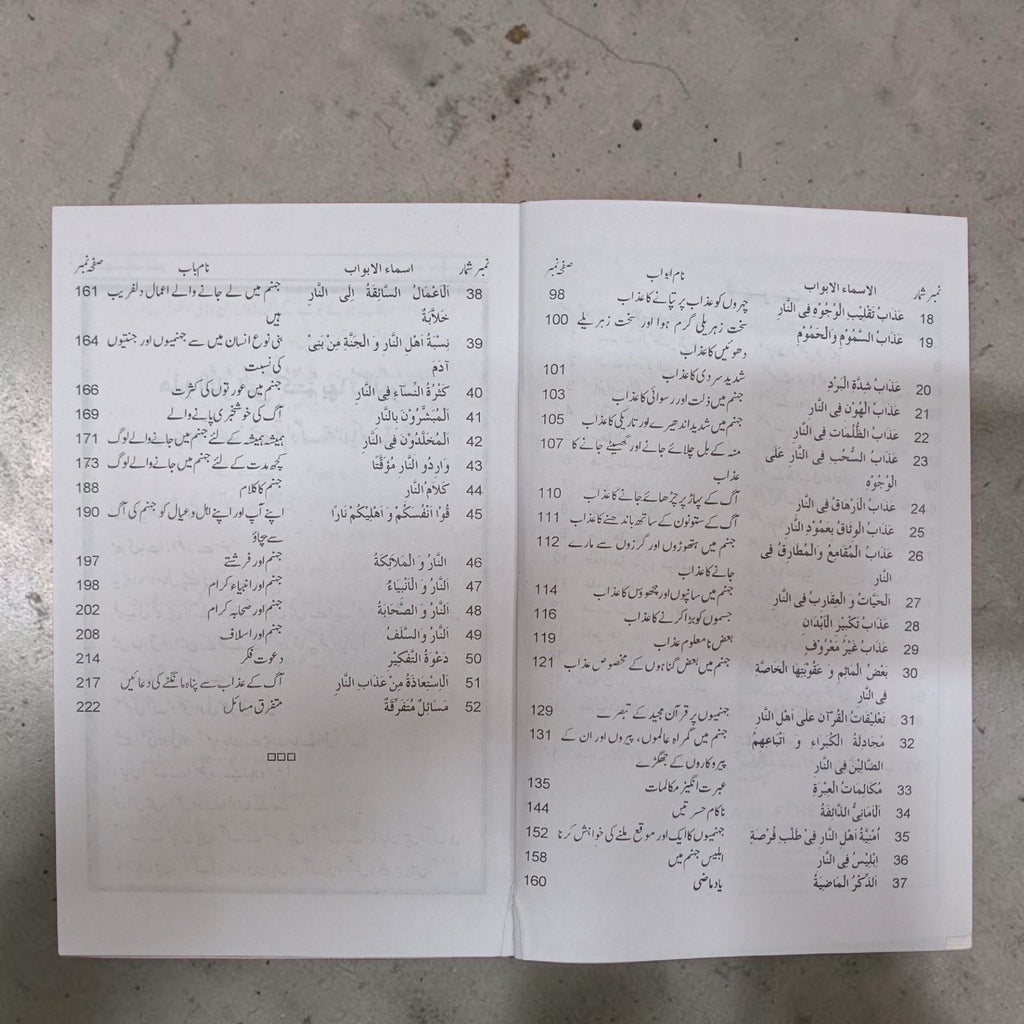 نمبر شمار الاسماء الابواب نام ابواب صفحہ نمبر
18 عَذَابُ تَقْلِيْبِ الْوُجُوْهِ فِى النَّارِ چہروں کو عذاب پر تپانے کا عذاب 98
19 عَذَابُ السَّمُوْمِ وَالْحَمُوْمِ سخت زہریلی گرم ہوا اور سخت زہریلے 100
دھوئیں کا عذاب
20 عَذَابُ شِدَّةِ الْبَرْدِ شدید سردی کا عذاب 101
21 عَذَابُ الْهُوْنِ فِى النَّارِ جہنم میں ذلت اور رسوائی کا عذاب 103
22 عَذَابُ الظُّلُمَاتِ فِى النَّارِ جہنم میں شدید اندھیرے اور تاریکی کا عذاب 105
23 عَذَابُ السَّحْبِ فِى النَّارِ عَلَى منہ کے بل چلائے جانے اور گھسیٹے جانے کا 107
الْوُجُوْهِ عذاب
24 عَذَابُ الْاِرْهَاقِ فِى النَّارِ آگ کے پہاڑ پر چڑھائے جانے کا عذاب 110
25 عَذَابُ الْوِثَاقِ بِعَمُوْدِ النَّارِ آگ کے ستونوں کے ساتھ باندھنے کا عذاب 111
26 عَذَابُ الْمَقَامِعِ وَالْمَطَارِقِ فِى جہنم میں ہتھوڑوں اور گرزوں سے مارے 112
النَّارِ جانے کا عذاب
27 اَلْحَيَّاتُ وَ الْعَقَارِبُ فِى النَّارِ جہنم میں سانپوں اور بچھوؤں کا عذاب 114
28 عَذَابُ تَكْبِيْرِ الْاَبْدَانِ جسموں کو بڑا کرنے کا عذاب 116
29 عَذَابٌ غَيْرُ مَعْرُوْفٍ بعض نامعلوم عذاب 119
30 بَعْضُ الْمَاثِمِ وَ عُقُوْبَتِهَا الْخَاصَّةِ جہنم میں بعض گناہوں کے مخصوص عذاب 121
فِى النَّارِ
31 تَعْلِيْقَاتُ الْقُرْآنِ عَلٰى اَهْلِ النَّارِ جہنمیوں پر قرآن مجید کے تبصرے 129
32 مُجَادَلَةُ الْكُبَرَاءِ وَ اَتْبَاعِهِمُ جہنم میں گمراہ عالموں، پیروں اور ان کے 131
الضَّالِّيْنَ فِى النَّارِ پیروکاروں کے جھگڑے
33 مُكَالِمَاتُ الْعِبْرَةِ عبرت انگیز مکالمات 135
34 اَلْاَمَانِىُّ الذَّائِقَةُ ناکام حسرتیں 144
35 اُمْنِيَّةُ اَهْلِ النَّارِ فِىْ طَلَبِ فُرْصَةٍ جہنمیوں کا ایک اور موقع ملنے کی خواہش کرنا 152
36 اِبْلِيْسُ فِى النَّارِ ابلیس جہنم میں 158
37 اَلذِّكْرُ الْمَاضِيَةُ یاد ماضی 160
نمبر شمار اسماء الابواب نام باب صفحہ نمبر
38 اَلْاَعْمَالُ السَّائِقَةُ اِلَى النَّارِ جہنم میں لے جانے والے اعمال دلفریب 161
خَلَّابَةٌ ہیں
39 نِسْبَةُ اَهْلِ النَّارِ وَ الْجَنَّةِ مِنْ بَنِىْ بنی نوع انسان میں سے جہنمیوں اور جنتیوں 164
آدَمَ کی نسبت
40 كَثْرَةُ النِّسَآءِ فِى النَّارِ جہنم میں عورتوں کی کثرت 166
41 اَلْمُبَشَّرُوْنَ بِالنَّارِ آگ کی خوشخبری پانے والے 169
42 اَلْمُخَلَّدُوْنَ فِى النَّارِ ہمیشہ ہمیشہ کے لئے جہنم میں جانے والے لوگ 171
43 وَارِدُو النَّارِ مُؤَقَّتًا کچھ مدت کے لئے جہنم میں جانے والے لوگ 173
44 كَلَامُ النَّارِ جہنم کا کلام 188
45 قُوْا اَنْفُسَكُمْ وَ اَهْلِيْكُمْ نَارًا اپنے آپ اور اپنے اہل و عیال کو جہنم کی آگ 190
سے بچاؤ
46 اَلنَّارُ وَ الْمَلَائِكَةُ جہنم اور فرشتے 197
47 اَلنَّارُ وَ الْاَنْبِيَاءُ جہنم اور انبیاء کرام 198
48 اَلنَّارُ وَ الصَّحَابَةُ جہنم اور صحابہ کرام 202
49 اَلنَّارُ وَ السَّلَفُ جہنم اور اسلاف 208
50 دَعْوَةُ التَّفْكِيْرِ دعوت فکر 214
51 اَلْاِسْتِعَاذَةُ مِنْ عَذَابِ النَّارِ آگ کے عذاب سے پناہ مانگنے کی دعائیں 217
52 مَسَائِلُ مُتَفَرِّقَةٌ متفرق مسائل 222